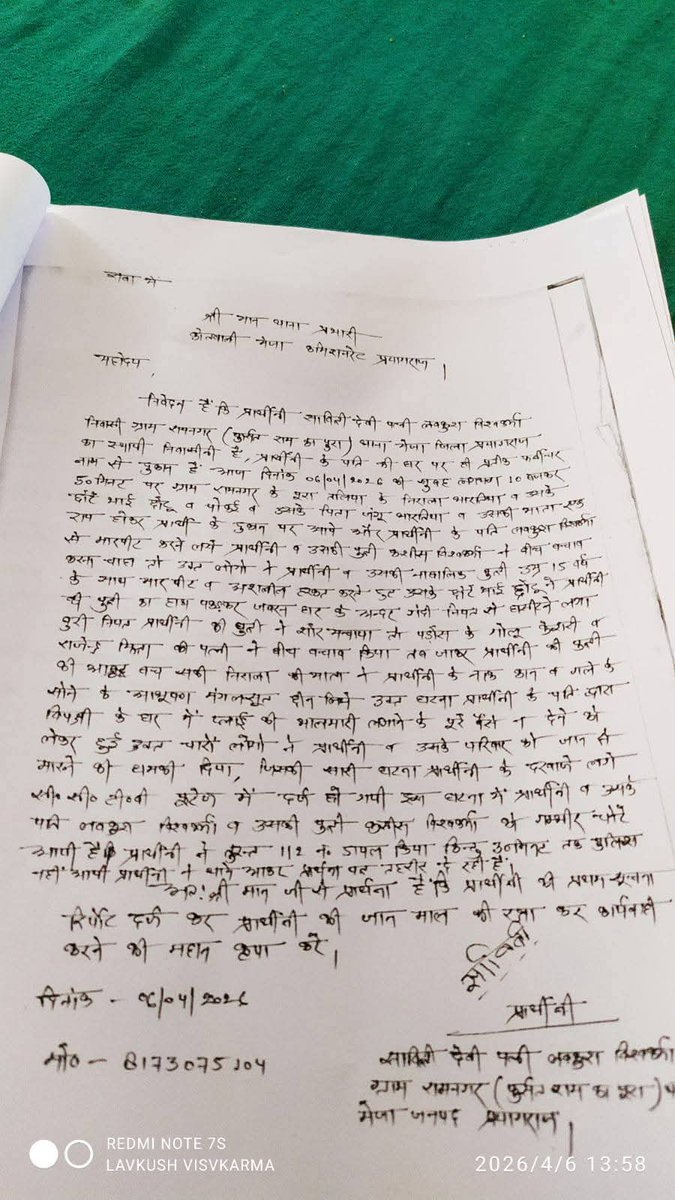 सेवा में
श्री मान थाना प्रभारी
कोतवाली मेजा कमिश्नरेट प्रयागराज।
महोदय,
निवेदन है कि प्रार्थीनी सावित्री देवी पत्नी लवकुश विश्वकर्मा
निवासी ग्राम रामनगर ( राम का पुरा) थाना मेजा जिला प्रयागराज
का स्थायी निवासीनी है, प्रार्थीनी के पति की घर पर ही फर्नीचर
नाम से दुकान है आज दिनांक 06/04/2026 को सुबह लगभग 10 बजकर
50 मिनट पर ग्राम रामनगर के पूरा के निराला भारतिया व उसके
छोटे भाई छोटू व व उसके पिता भारतिया व उसकी माता एक
राय होकर प्रार्थी के दुकान पर आये और प्रार्थीनी के पति लवकुश विश्वकर्मा
से मारपीट करने लगे प्रार्थीनी व उसकी पुत्री विश्वकर्मा ने बीच बचाव
करना चाहा तो उक्त लोगो ने प्रार्थीनी व उसकी नाबालिक पुत्री उम्र 15 वर्ष
के साथ मारपीट व अश्लील हरकत करते हुए उसके छोटे भाई छोटू ने प्रार्थीनी
की पुत्री का हाथ पकड़कर जबरन घर के अन्दर गंदी नियत से घसीटने लगा
बुरी नियत प्रार्थीनी की पुत्री ने शोर मचाया तो पड़ोस के गोलू केशरी व
राजेन्द्र की पत्नी ने बीच बचाव किया तब जाकर प्रार्थीनी की पुत्री
की आबरू बच सकी निराला की माता ने प्रार्थीनी के नाक कान व गले के
सोने के आभूषण मंगलसूत्र छीन लिये उक्त घटना प्रार्थीनी के पति द्वारा
विपक्षी के घर में प्लाई की आलमारी लगाने के पूरे पैसे न देने को
लेकर हुई उक्त चारों लोगों ने प्रार्थीनी व उसके परिवार को जान से
मारने की धमकी दिया, जिसकी सारी घटना प्रार्थीनी के दरवाजे लगे
सी० सी० टी०वी फुटेज में दर्ज हो गयी इस घटना में प्रार्थीनी व उसके
पति लवकुश विश्वकर्मा व उसकी पुत्री विश्वकर्मा को गम्भीर चोटें
आयी है प्रार्थीनी ने तुरन्त 112 नं० डायल किया किन्तु तक पुलिस
नहीं आयी प्रार्थीनी ने थाने आकर प्रार्थना पत्र तहरीर दे रही है
अतः श्री मान जी से प्रार्थना है कि प्रार्थीनी की प्रथम सूचना
रिर्पोट दर्ज कर प्रार्थीनी की जान माल की रक्षा कर कार्यवाही
करने की महान कृपा करें।
सावित्री
दिनांक - 06/04/2026
प्रार्थीनी
मो० - 8173075104
सावित्री देवी पत्नी लवकुश विश्वकर्मा
ग्राम रामनगर ( राम का पुरा)
मेजा जनपद प्रयागराज।
REDMI NOTE 7S
LAVKUSH VISVKARMA
2026/4/6 13:58